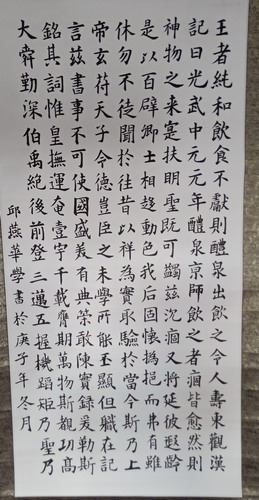 王者純和飲食不獻則醴泉出飲之令人壽東觀漢
記曰光武中元元年醴泉京師飲之者痼皆愈然則
神物之来寔扶明聖既可蠲兹沉痼又将延彼遐齡
是以百辟卿士相趍動色我后固懷撝挹而弗有雖
休勿不徒聞於往昔以祥為實取驗於當今斯乃上
帝玄苻天子令德豈臣之末學所能丕顯但職在記
言兹書事不可使國盛美有典策敢陳實録爰勒斯
銘其詞惟皇撫運奄壹宇千載膺期萬物斯覩功髙
大舜勤深伯禹絶後前登三邁五握機蹈矩乃聖乃
邱燕華學書於庚子年冬月